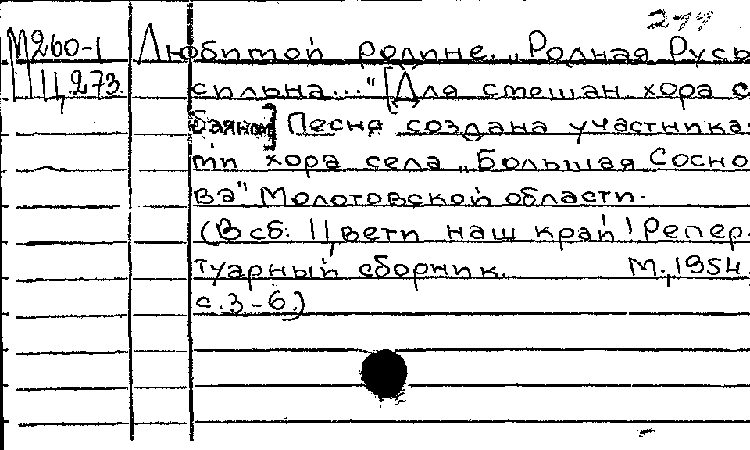 М260-1 Любимой родине. „Родная Русь
Ц273 сильна..." [Для смешан. хора с
баяном] Песня создана участника-
ми хора села „Большая Сосно
ва" Молотовской области.
(В сб: Цвети наш край! Репер-
туарный сборник. М., 1954,
с.3-6.)